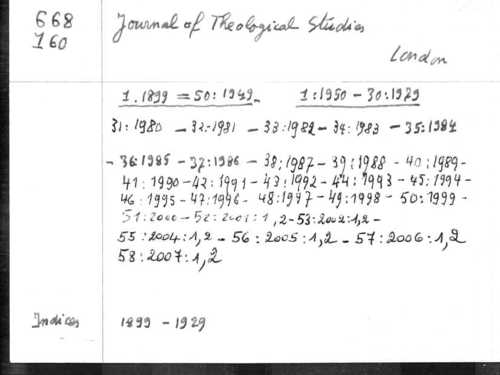 668
160
Journal of Theological Studies
London
1.1899 = 50:1949 1:1950 - 30:1979
31:1980 - 32:1981 - 33:1982 - 34:1983 - 35:1984
- 36:1985 - 37:1986 - 38:1987 - 39:1988 - 40:1989 -
41:1990 - 42:1991 - 43:1992 - 44:1993 - 45:1994 -
46:1995 - 47:1996 - 48:1997 - 49:1998 - 50:1999 -
51:2000 - 52:2001:1,2 - 53:2002:1,2 -
55:2004:1,2 - 56:2005:1,2 - 57:2006:1,2
58:2007:1,2
Indices 1899 - 1929